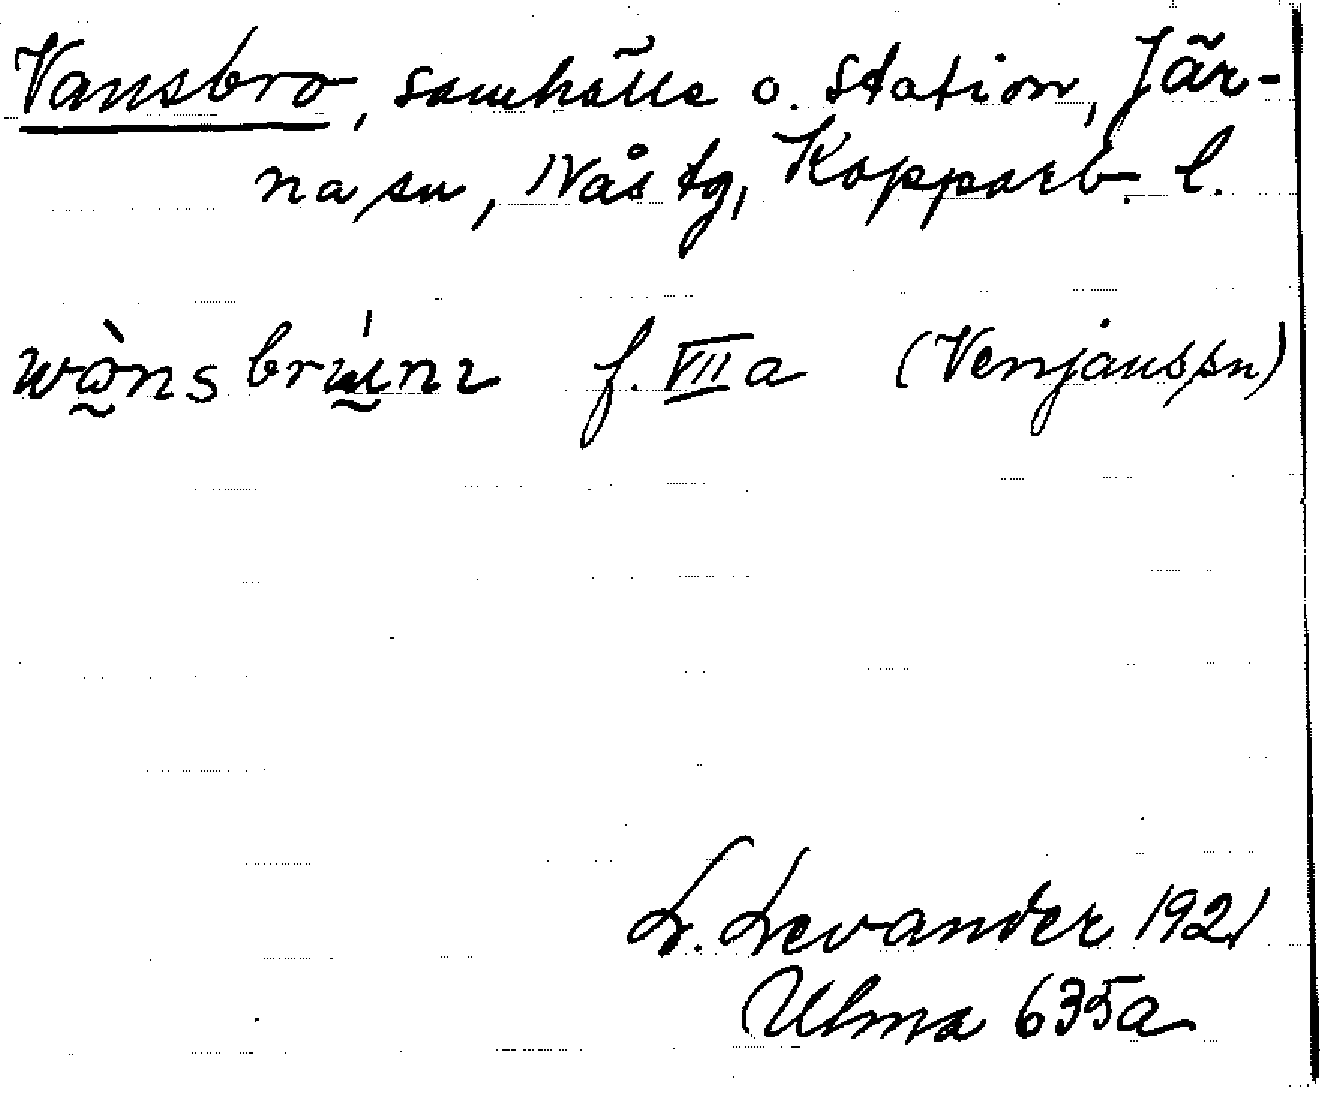 Vansbro, samhälle o. station, Jär-
na sn, Nås tg, Kopparb. l.
f. VII a (Venjans sn)
L. Levander 1921
Ulma 635a